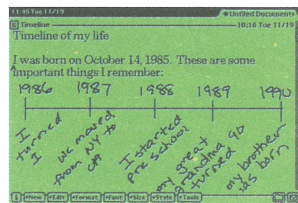 11:45 Tue 11/19
Unfiled Documents
Timeline
10:16 Tue 11/19
Timeline of my life
I was born on October 14, 1985. These are some
important things I remember:
1986 1987 1988 1989 1990
I turned 1
we moved from NY to CA
I started pre school
my great grandma 90 turned
my brother was born
New Edit Format Font Size Style Tools